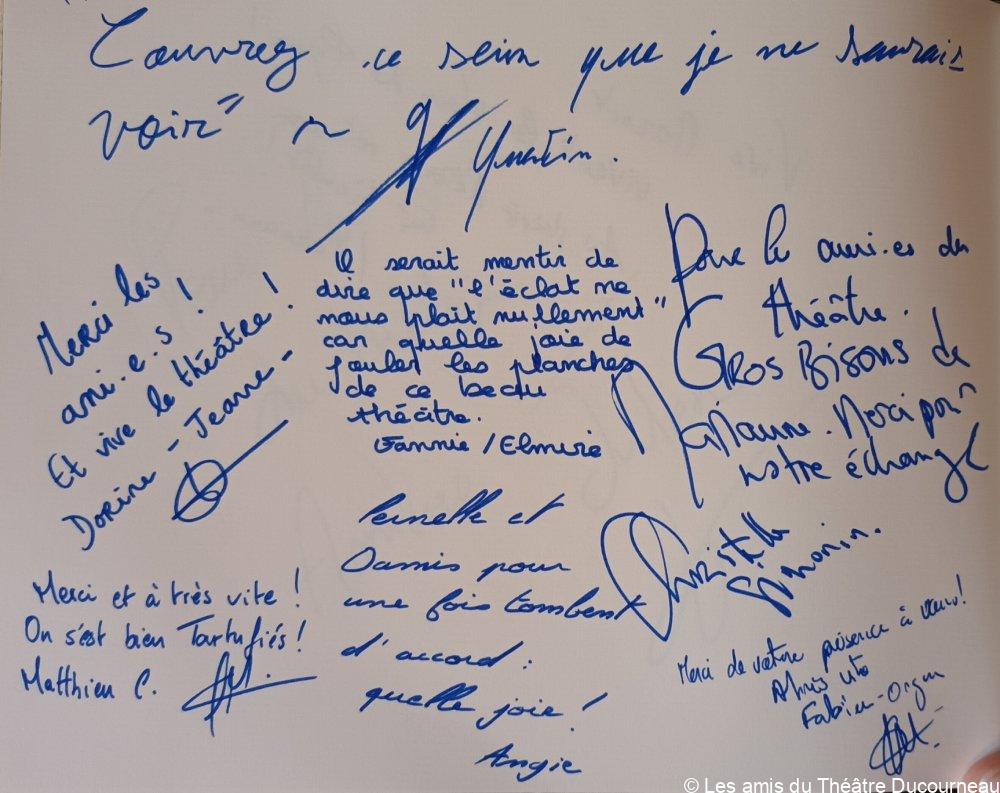 Couvrez ce sein que je ne saurais
voir"
Quentin.
Merci les
ami.e.s !
Et vive le théâtre !
Dorine - Jeanne -
Il serait mentir de
dire que "l'éclat ne
nous plait nullement"
car quelle joie de
fouler les planches
de ce beau
théâtre.
Fannie / Elmire
Pour les ami.es du
théâtre.
GROS BISOUS de
Marianne. Merci pour
notre échange
Christelle
Simonin.
Pernelle et
Damis pour
une fois tombent
d'accord :
quelle joie !
Angie
Merci et à très vite !
On s'est bien Tartufiés !
Matthieu C.
Merci de votre présence à vous !
A très vite
Fabien - Orgon
© Les amis du Théâtre Ducourneau